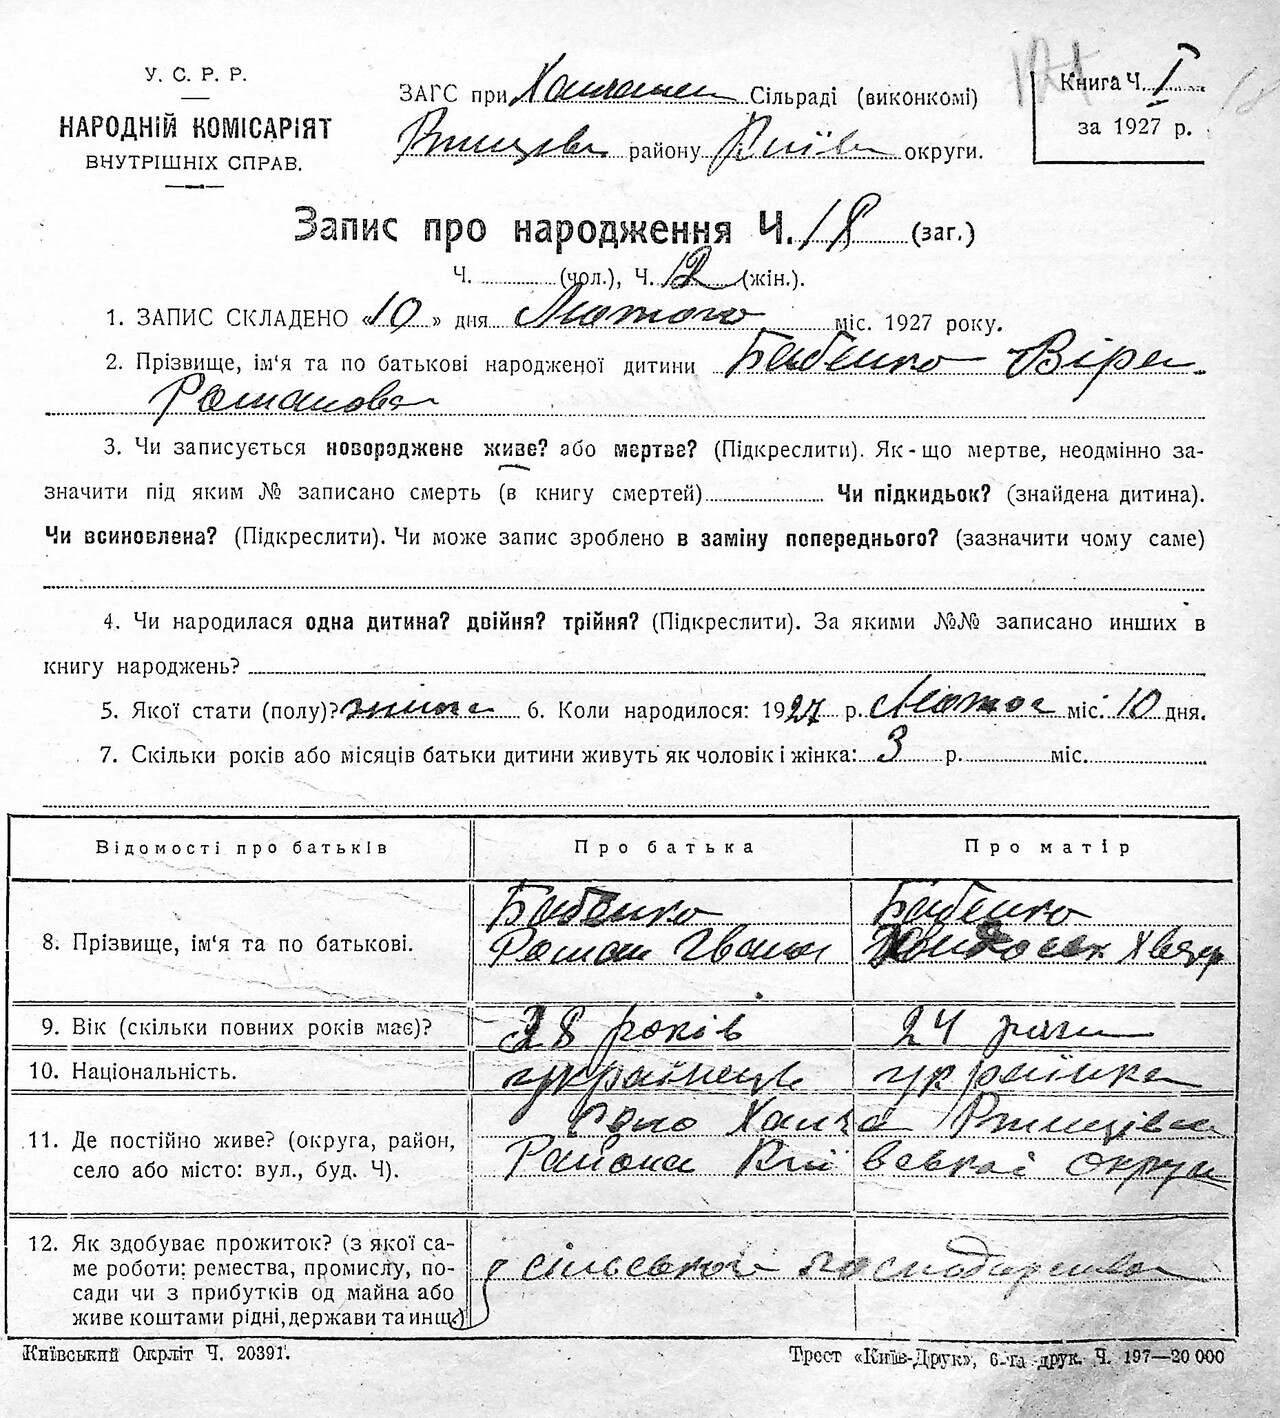 У. С. Р. Р.
НАРОДНІЙ КОМІСАРІЯТ
ВНУТРІШНІХ СПРАВ.
ЗАГС при Сільраді (виконкомі)
району Київ округи.
Книга Ч. I
за 1927 р.
Запис про народження Ч. 18 (заг.)
Ч. (чол.), Ч. 12 (жін.).
1. ЗАПИС СКЛАДЕНО «10» дня Лютого міс. 1927 року.
2. Прізвище, ім‘я та по батькові народженої дитини Бабенко Віра
Романова
3. Чи записується новороджене живе? або мертве? (Підкреслити). Як-що мертве, неодмінно за-
значити під яким № записано смерть (в книгу смертей) Чи підкидьок? (знайдена дитина).
Чи всиновлена? (Підкреслити). Чи може запис зроблено в заміну попереднього? (зазначити чому саме)
4. Чи народилася одна дитина? двійня? трійня? (Підкреслити). За якими №№ записано инших в
книгу народжень?
5. Якої стати (полу)? жіноча 6. Коли народилося: 1927 р. Лютого міс. 10 дня.
7. Скільки років або місяців батьки дитини живуть як чоловік і жінка: 3 р. міс.
Відомості про батьків Про батька Про матір
8. Прізвище, ім‘я та по батькові. Бабенко Роман Іванов Бабенко
9. Вік (скільки повних років має)? 28 років 24 роки
10. Національність. українець українка
11. Де постійно живе? (округа, район,
село або місто: вул., буд. Ч).
Ржищівськ
Района Київської округи
12. Як здобуває прожиток? (з якої са-
ме роботи: ремества, промислу, по-
сади чи з прибутків од майна або
живе коштами рідні, держави та инш.)
з сільського господарства
Київський Окрліт Ч. 20391.
Трест «Київ-Друк», 6-та друк. Ч. 197—20 000